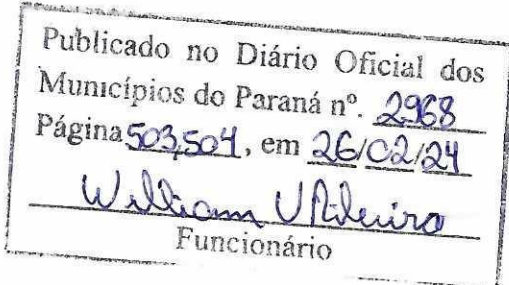 Publicado no Diário Oficial dos
Municípios do Paraná nº. 2968
Página 503,504, em 26/02/24
William V Ribeiro
Funcionário